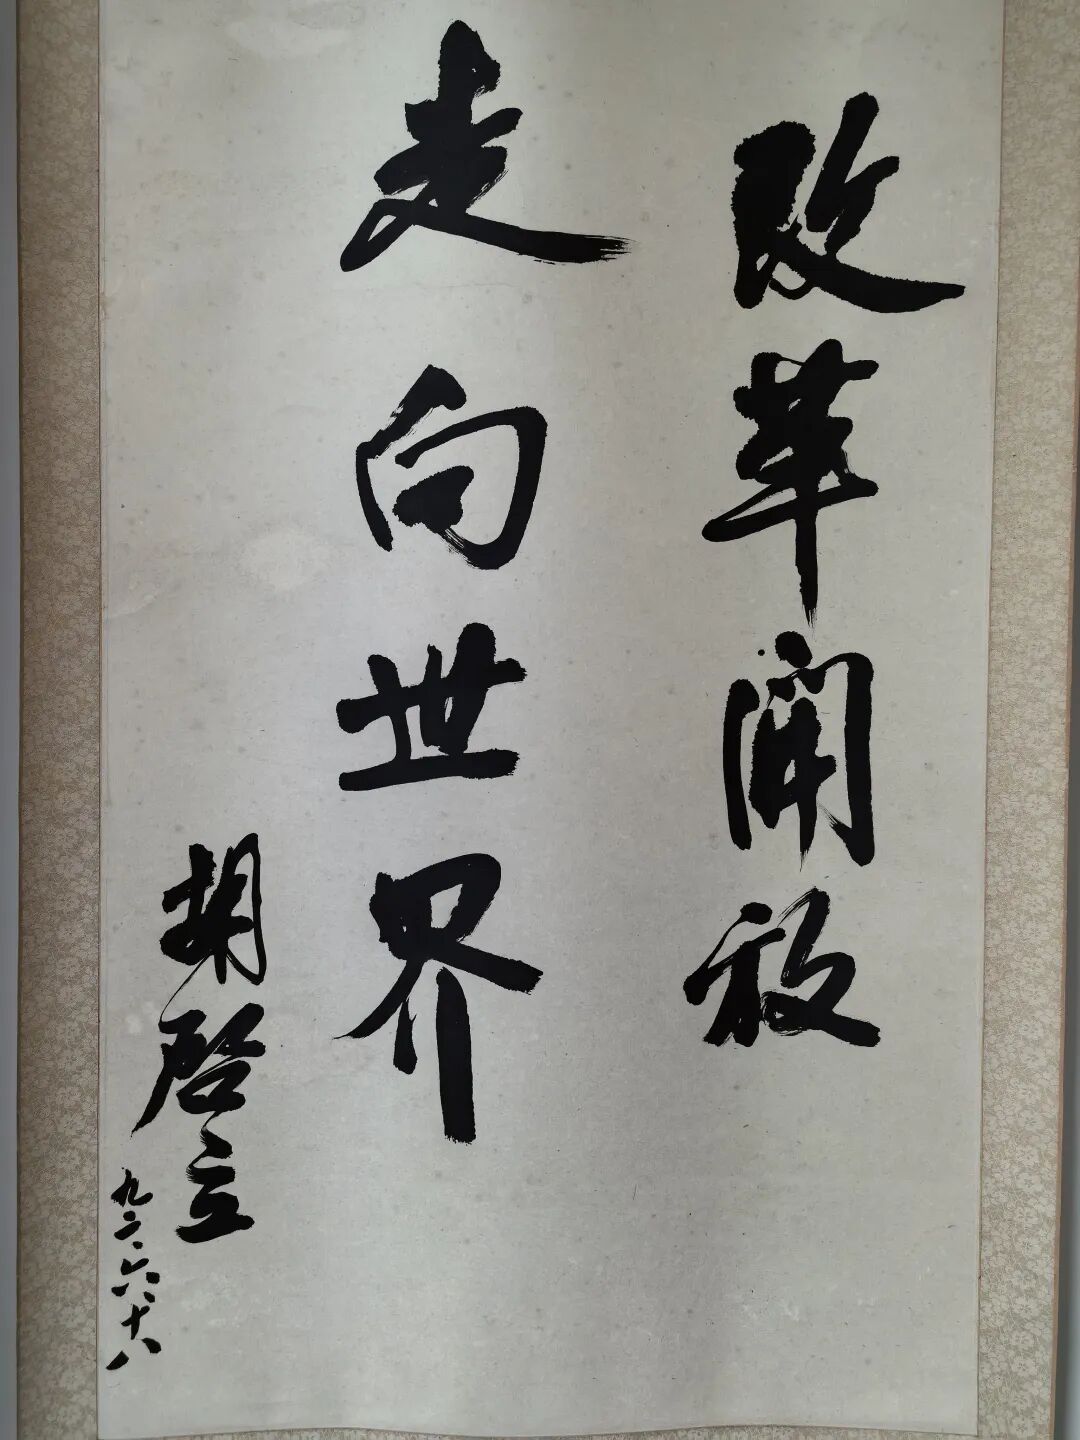 改革開放
走向世界
胡启立
九二、六、十八